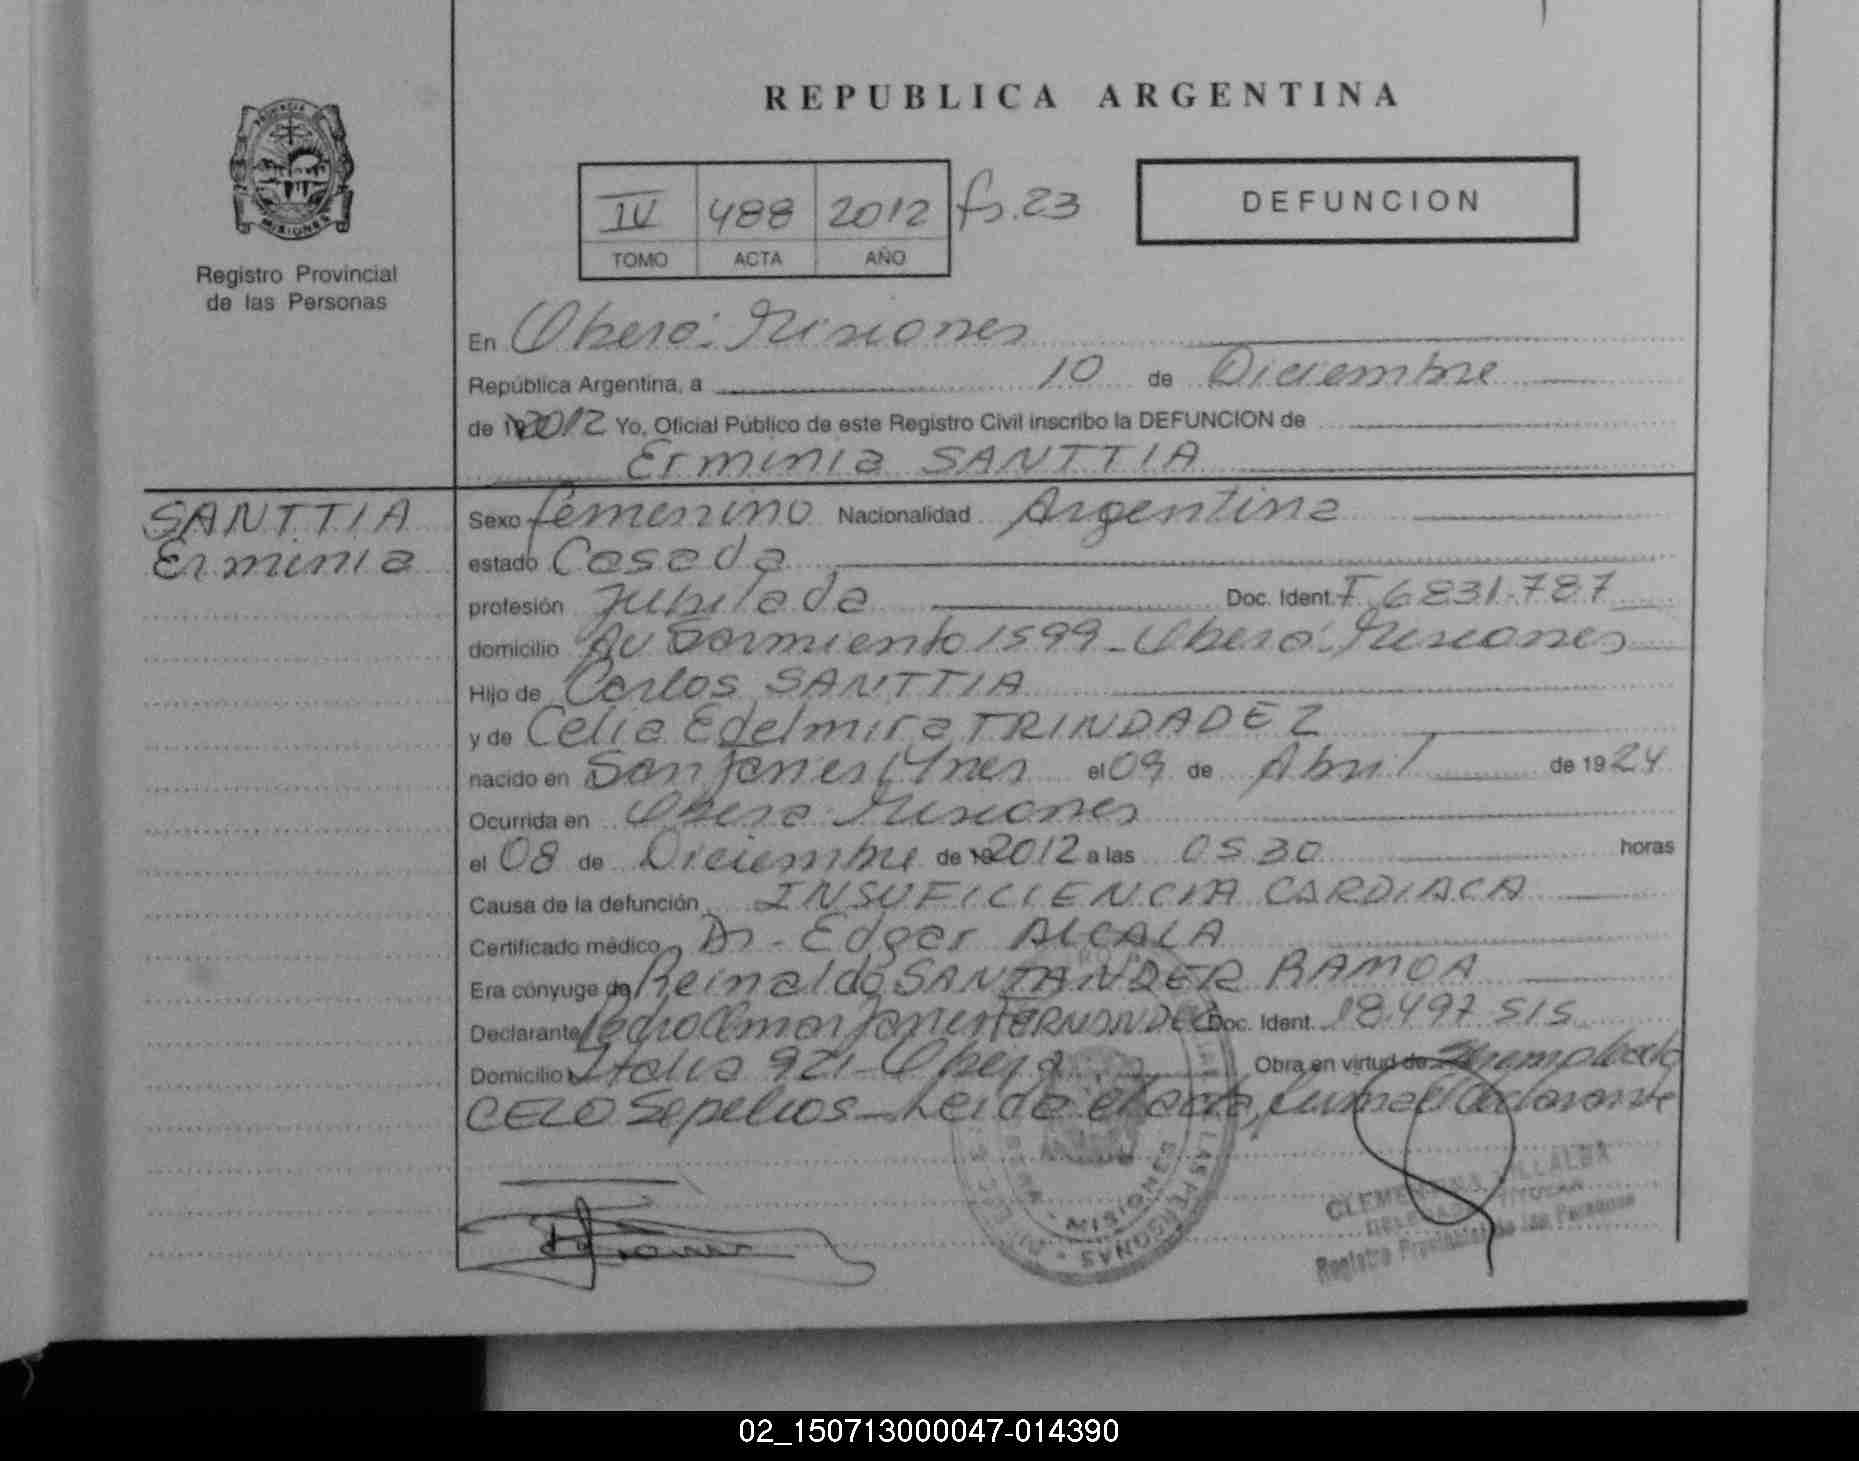 REPUBLICA ARGENTINA
PROVINCIA DE
MISIONES
Registro Provincial
de las Personas
IV 488 2012 fs. 23
TOMO ACTA AÑO
DEFUNCION
En Oberá: Misiones
República Argentina, a 10 de Diciembre
de 2012 Yo, Oficial Público de este Registro Civil inscribo la DEFUNCION de
Erminia SANTTIA
SANTTIA
Erminia
Sexo femenino Nacionalidad Argentina
estado Casada
profesión Jubilada Doc. Ident. F 6831.787
domicilio Av Sarmiento 1599 - Oberá: Misiones
Hijo de Carlos SANTTIA
y de Celia Edelmira TRINDADEZ
nacido en San Javier el 09 de Abril de 1924
Ocurrida en Oberá Misiones
el 08 de Diciembre de 2012 a las 05 30 horas
Causa de la defunción INSUFICIENCIA CARDIACA
Certificado médico Dr. Edgar ALCALA
Era cónyuge de Reinaldo SANTANDER RAMOA
Declarante Pedro Omar Javier FERNANDEZ Doc. Ident. 18.497 515
Domicilio Italia 921 - Oberá Obra en virtud de empleado
CELO Sepelios - Leida el acta, firma el declarante
MISIONES
LAS PERSONAS
CLEMENTINA VILLALBA
DELEGADA TITULAR
Registro Provincial de las Personas
02_150713000047-014390